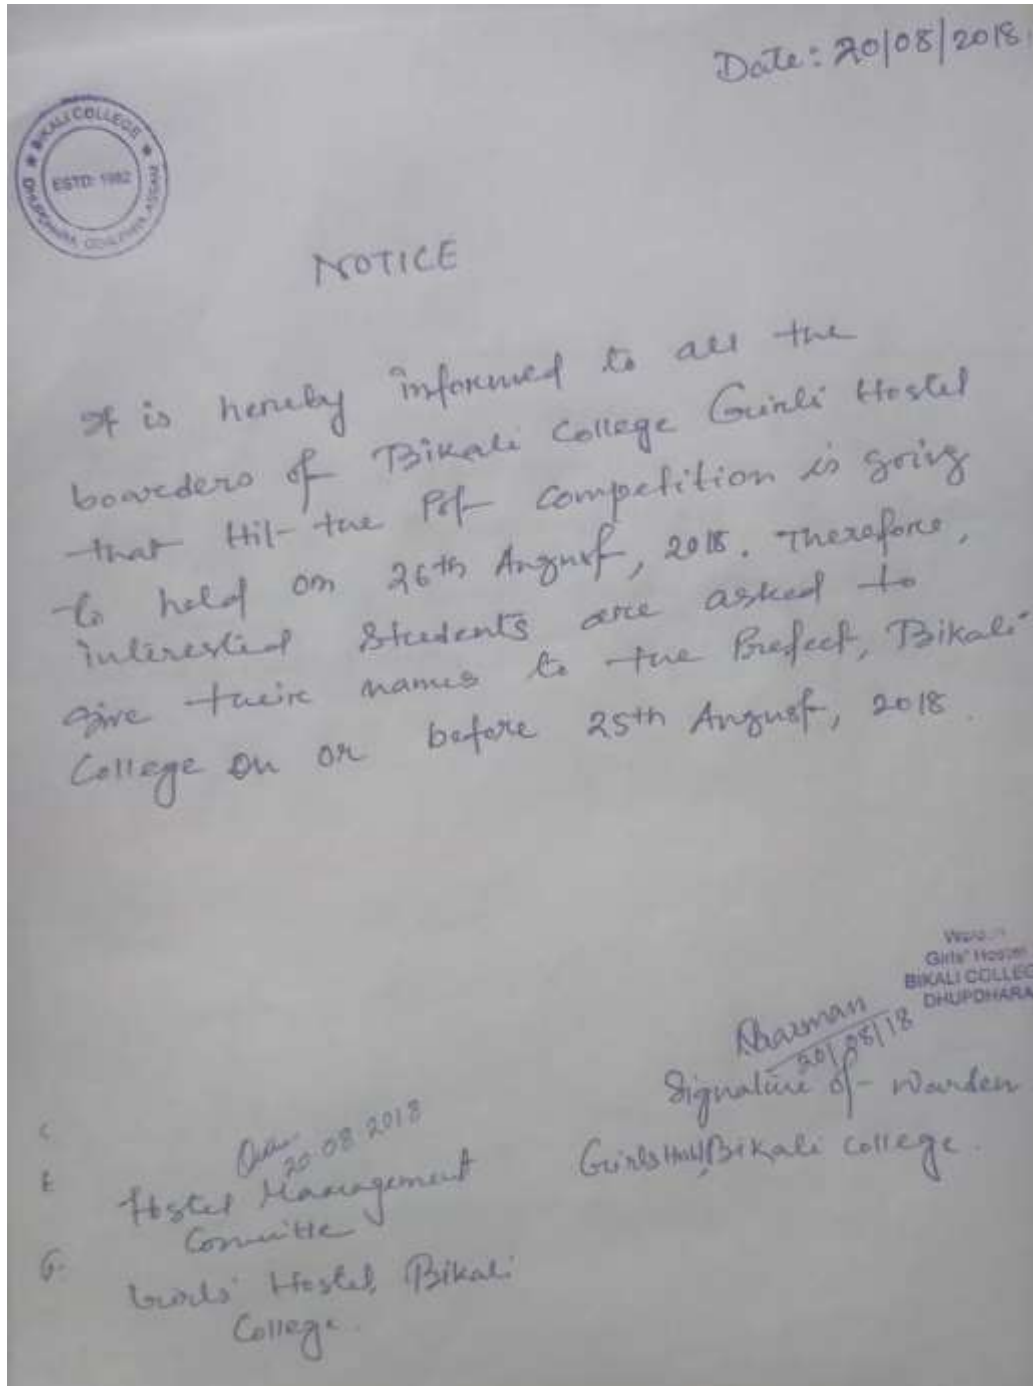 Date: 20/08/2018
BIKALI COLLEGE
ESTD: 1982
DHUPDHARA, GOALPARA, ASSAM
NOTICE
It is hereby informed to all the
boarders of Bikali College Girls' Hostel
that Hit-the Pot competition is going
to held on 26th August, 2018. Therefore,
interested students are asked to
give their names to the Prefect, Bikali
College on or before 25th August, 2018.
Girls' Hostel
BIKALI COLLEG
DHUPDHARA
20/08/18
Signature of Warden
Girls Hostel, Bikali College.
20.08.2018
Hostel Management
Committe
Girls' Hostel, Bikali
College.